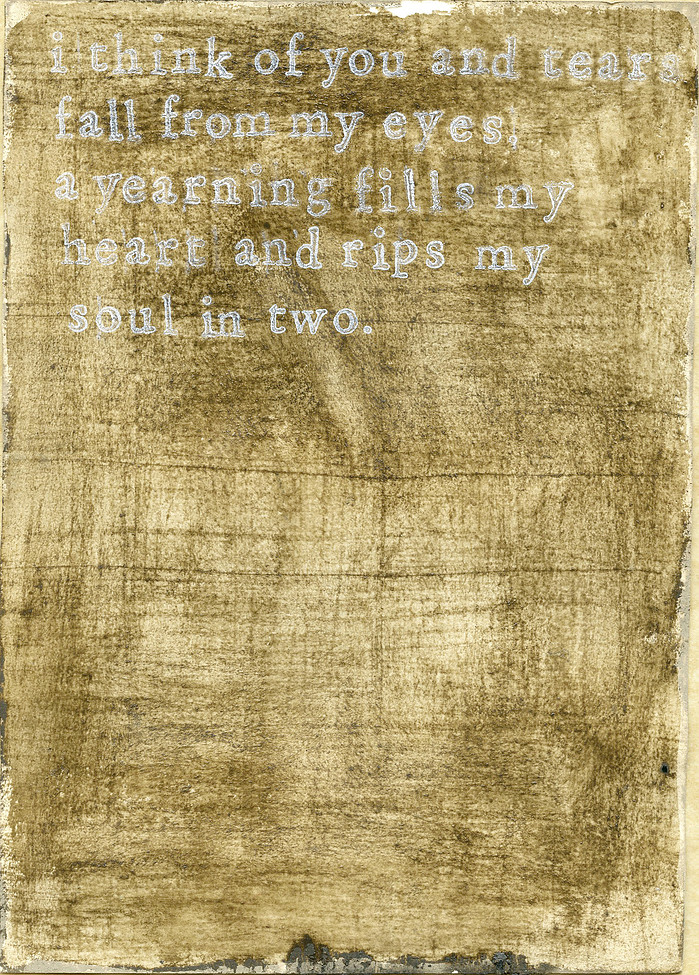 i think of you and tears
fall from my eyes,
a yearning fills my
heart and rips my
soul in two.